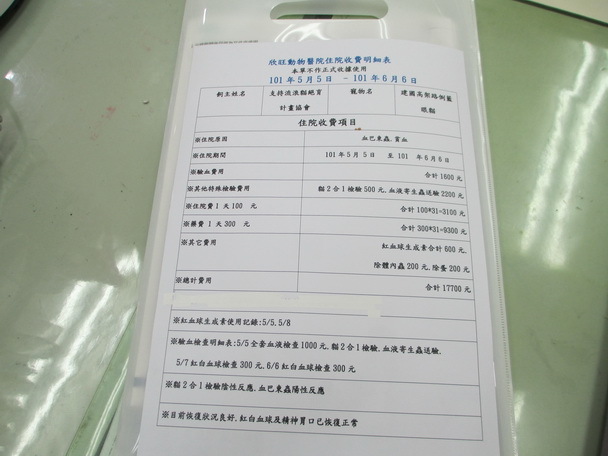 欣旺動物醫院住院收費明細表
本單不作正式收據使用
101年5月5日 -101年6月6日
飼主姓名 支持流浪貓絕育計畫協會 寵物名 建國高架路倒藍眼貓
住院收費項目
※住院原因 血巴東蟲.貧血
※住院期間 101年5月5日 至101年6月6日
※驗血費用 合計1600元
※其他特殊檢驗費用 貓2合1檢驗500元.血液寄生蟲送驗2200元
※住院費1天100 元 合計100*31=3100元
※藥費1天300 元 合計300*31=9300元
※其它費用 紅血球生成素合計600元.
除體內蟲200元.除蚤200元
※總計費用 合計17700元
※紅血球生成素使用記錄:5/5.5/8
※驗血檢查明細表:5/5全套血液檢查1000元.貓2合1檢驗.血液寄生蟲送驗.
5/7紅白血球檢查300元.6/6紅白血球檢查300元
※貓2合1檢驗陰性反應.血巴東蟲陽性反應
※目前恢復狀況良好.紅白血球及精神胃口已恢復正常